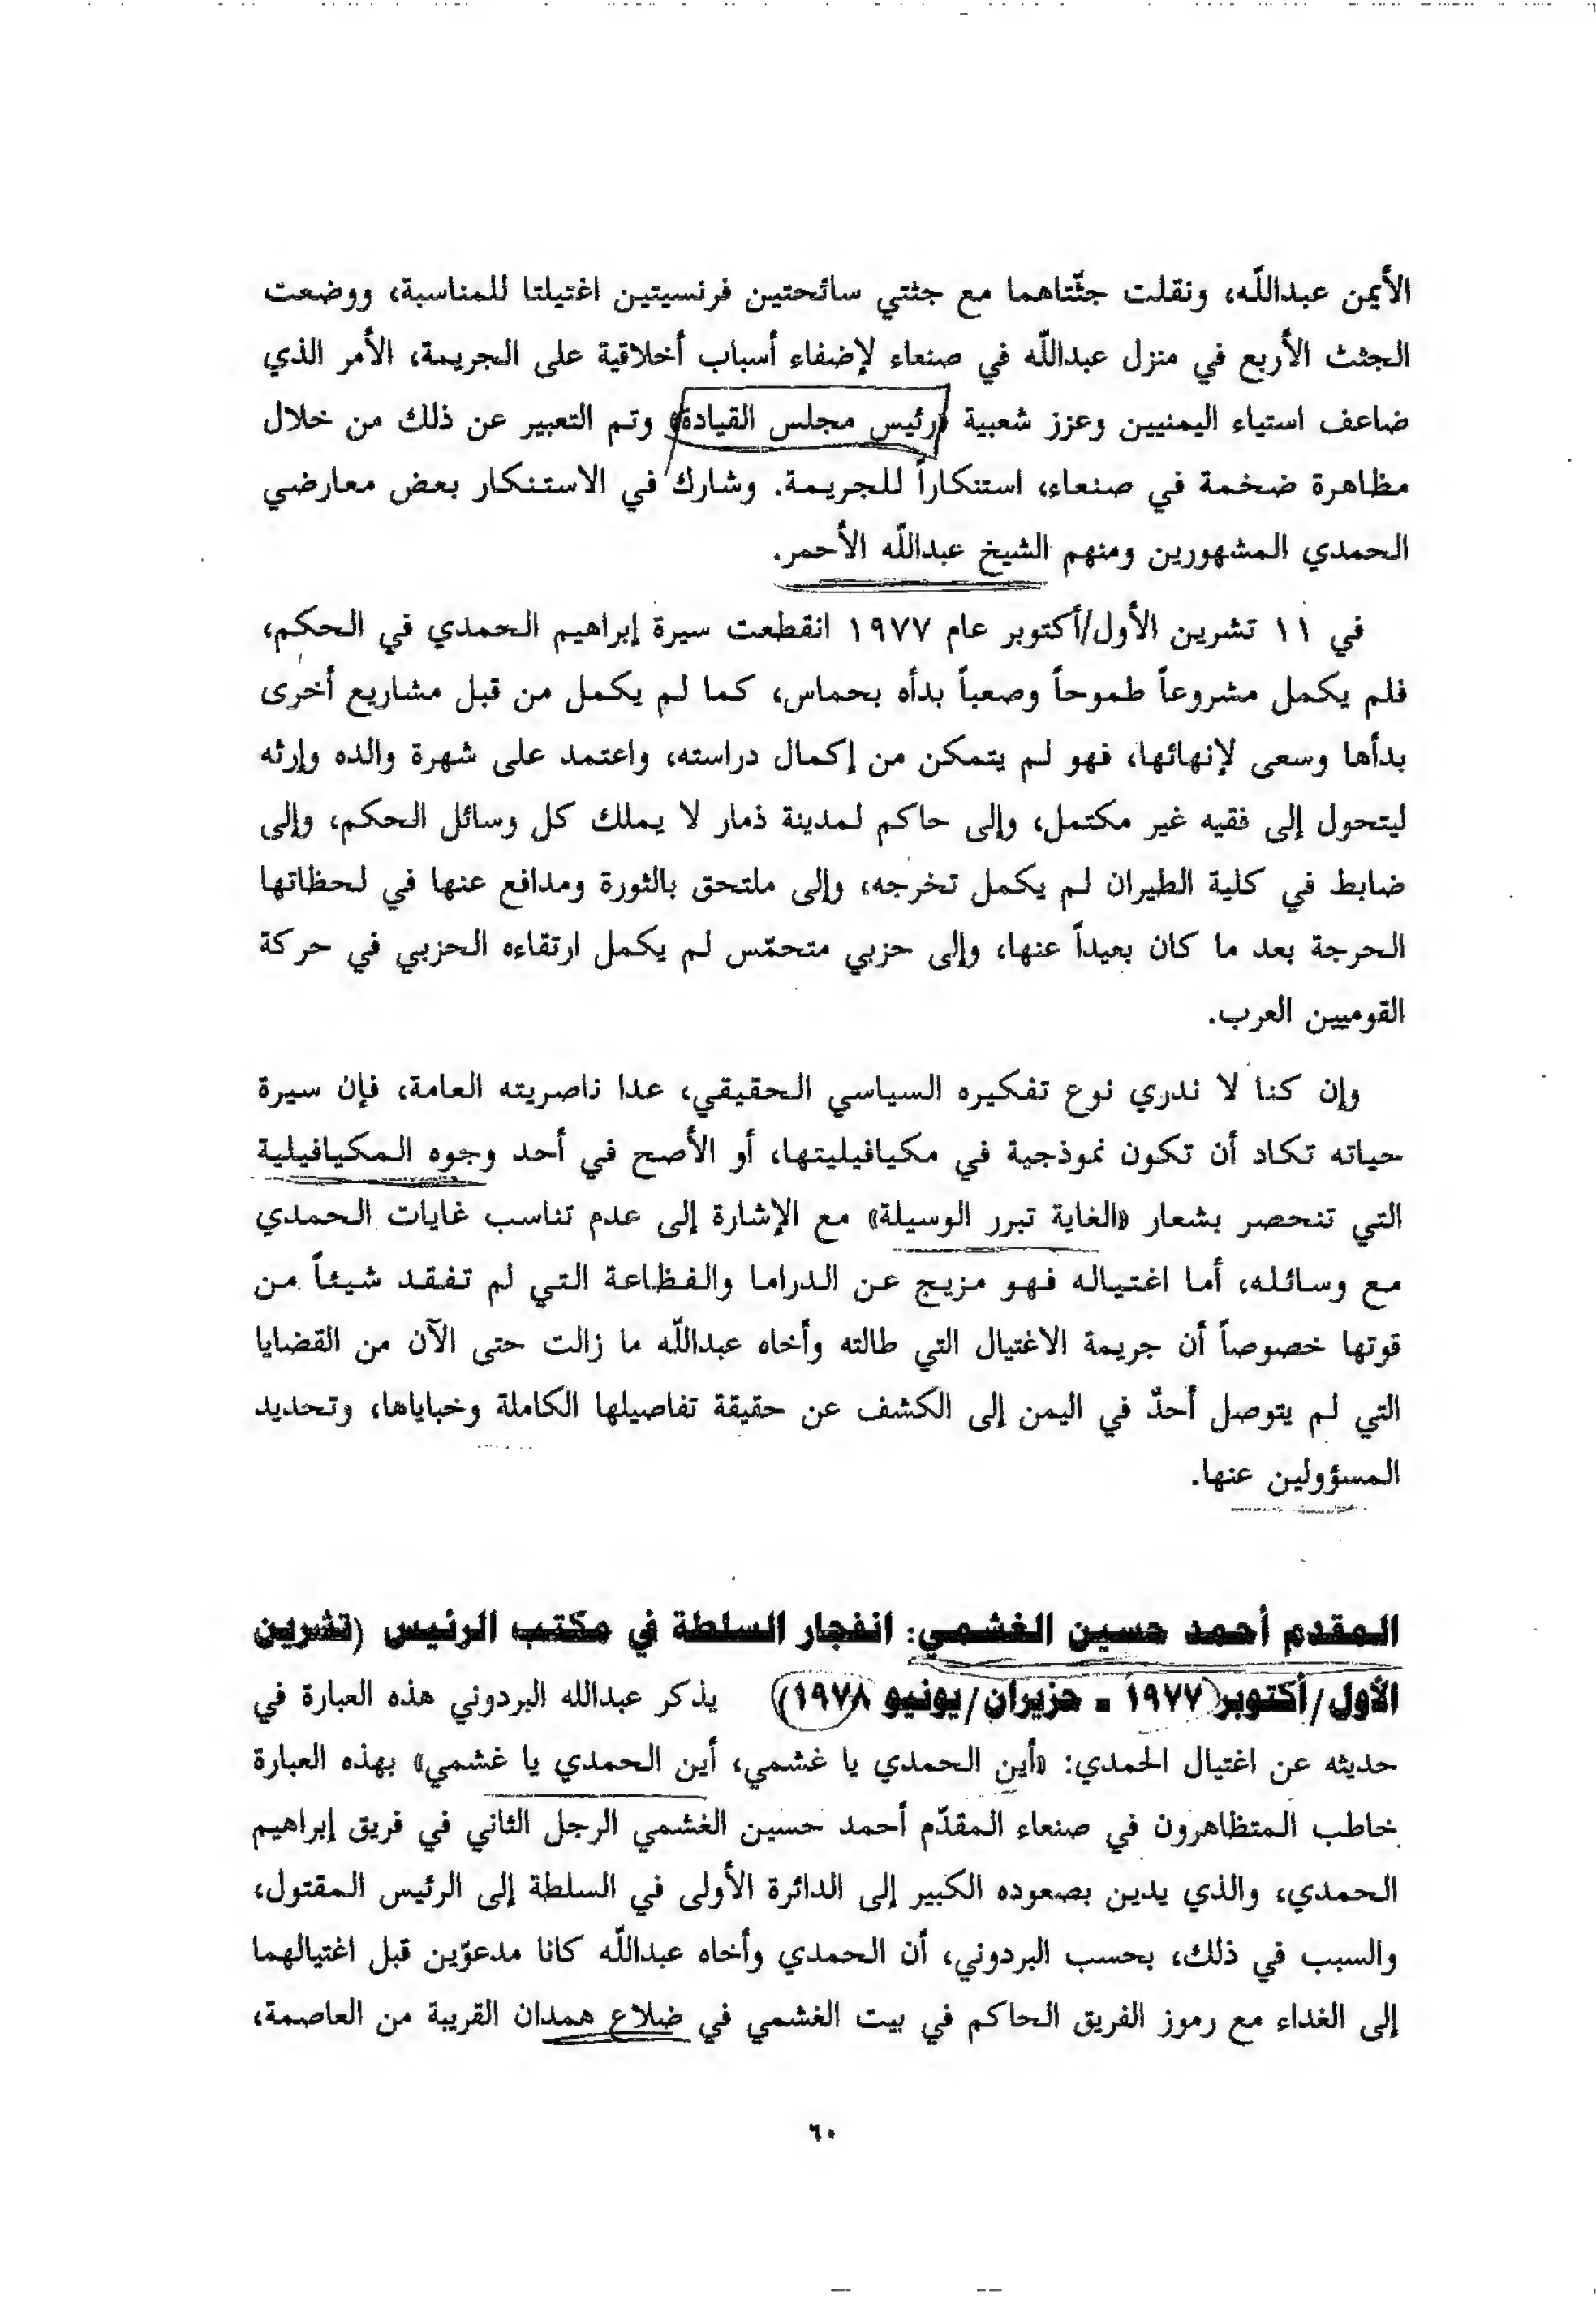 الأيمن عبداللّه، ونقلت جثّتاهما مع جثتي سائحتين فرنسيتين اغتيلتا للمناسبة، ووضعت
الجثث الأربع في منزل عبداللّه في صنعاء لإضفاء أسباب أخلاقية على الجريمة، الأمر الذي
ضاعف استياء اليمنيين وعزز شعبية «رئيس مجلس القيادة» وتم التعبير عن ذلك من خلال
مظاهرة ضخمة في صنعاء، استنكاراً للجريمة. وشارك في الاستنكار بعض معارضي
الحمدي المشهورين ومنهم الشيخ عبداللّه الأحمر.
في ١١ تشرين الأول/أكتوبر عام ١٩٧٧ انقطعت سيرة إبراهيم الحمدي في الحكم،
فلم يكمل مشروعاً طموحاً وصعباً بدأه بحماس، كما لم يكمل من قبل مشاريع أخرى
بدأها وسعى لإنهائها، فهو لم يتمكن من إكمال دراسته، واعتمد على شهرة والده وإرثه
ليتحول إلى فقيه غير مكتمل، وإلى حاكم لمدينة ذمار لا يملك كل وسائل الحكم، وإلى
ضابط في كلية الطيران لم يكمل تخرجه، وإلى ملتحق بالثورة ومدافع عنها في لحظاتها
الحرجة بعد ما كان بعيداً عنها، وإلى حزبي متحمّس لم يكمل ارتقاءه الحزبي في حركة
القوميين العرب.
وإن كنا لا ندري نوع تفكيره السياسي الحقيقي، عدا ناصريته العامة، فإن سيرة
حياته تكاد أن تكون نموذجية في مكيافيليتها، أو الأصح في أحد وجوه المكيافيلية
التي تنحصر بشعار «الغاية تبرر الوسيلة» مع الإشارة إلى عدم تناسب غايات الحمدي
مع وسائله، أما اغتياله فهو مزيج عن الدراما والفظاعة التي لم تفقد شيئاً من
قوتها خصوصاً أن جريمة الاغتيال التي طالته وأخاه عبداللّه ما زالت حتى الآن من القضايا
التي لم يتوصل أحدٌ في اليمن إلى الكشف عن حقيقة تفاصيلها الكاملة وخباياها، وتحديد
المسؤولين عنها.
المقدم أحمد حسين الغشمي: انفجار السلطة في مكتب الرئيس (تشرين
الأول/أكتوبر ١٩٧٧ - حزيران/يونيو ١٩٧٨) يذكر عبدالله البردوني هذه العبارة في
حديثه عن اغتيال الحمدي: «أين الحمدي يا غشمي، أين الحمدي يا غشمي» بهذه العبارة
خاطب المتظاهرون في صنعاء المقدّم أحمد حسين الغشمي الرجل الثاني في فريق إبراهيم
الحمدي، والذي يدين بصعوده الكبير إلى الدائرة الأولى في السلطة إلى الرئيس المقتول،
والسبب في ذلك، بحسب البردوني، أن الحمدي وأخاه عبداللّه كانا مدعوّين قبل اغتيالهما
إلى الغداء مع رموز الفريق الحاكم في بيت الغشمي في ضلاع همدان القريبة من العاصمة،
٦٠